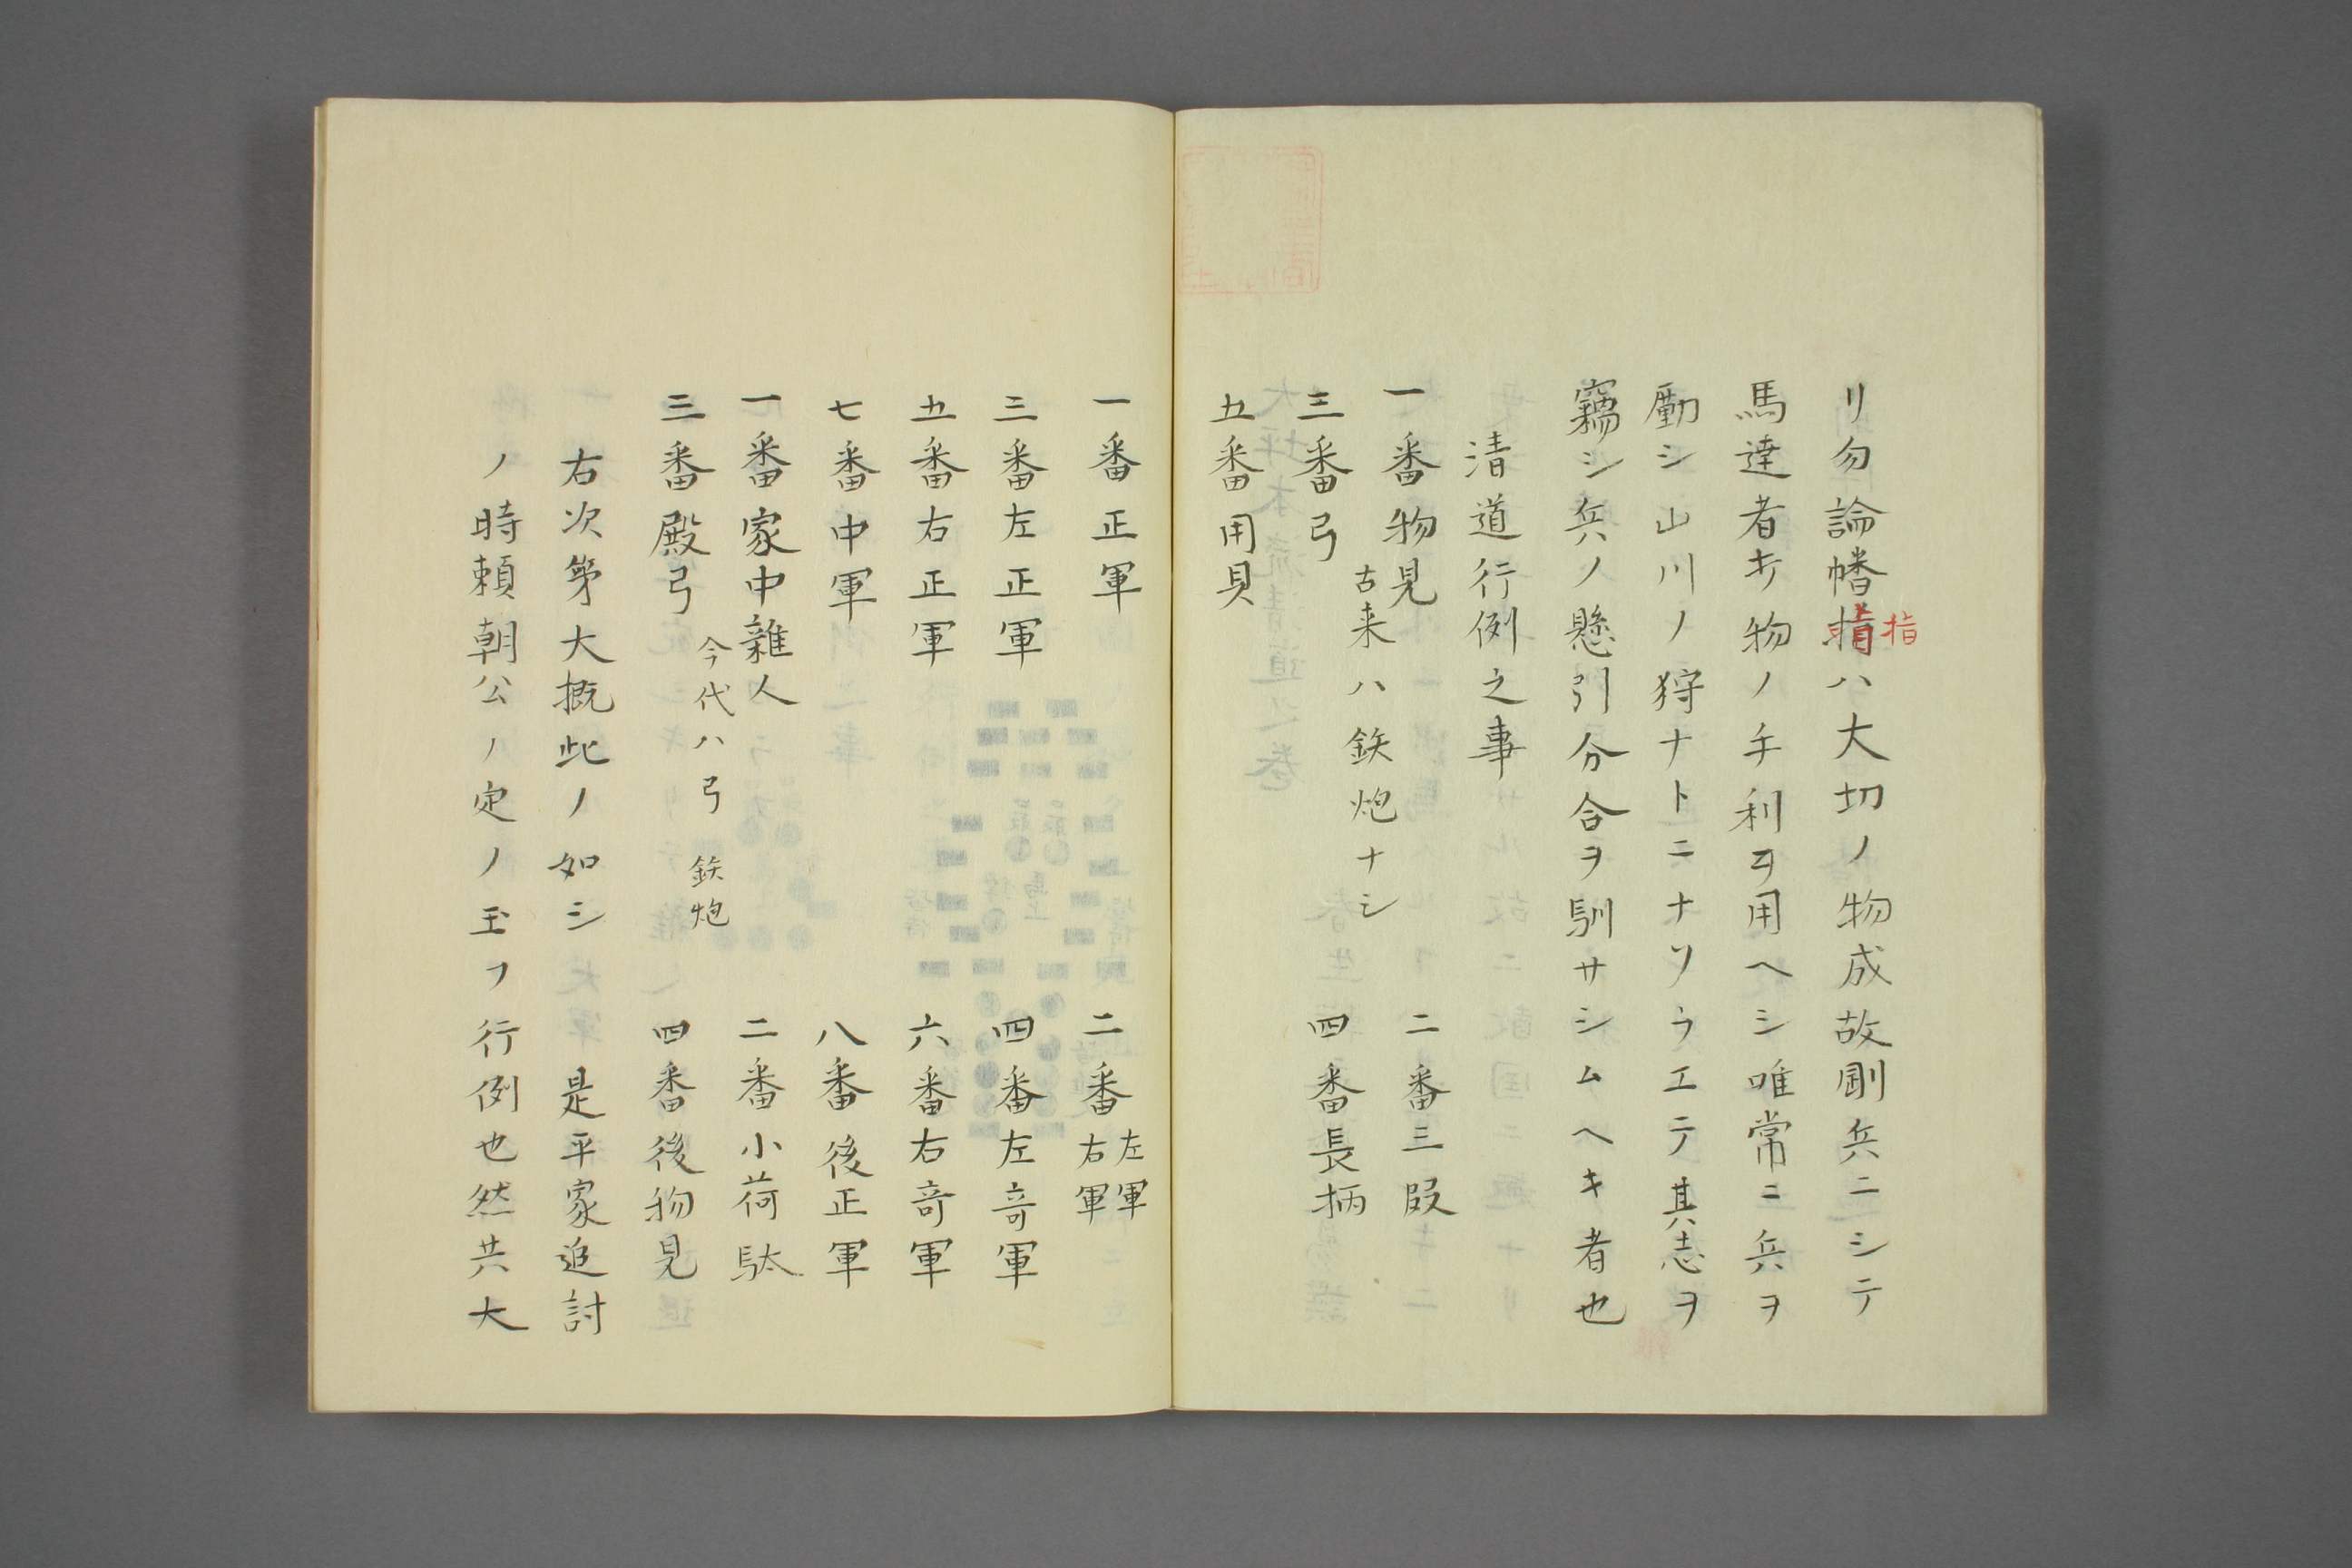 リ勿論幡指ハ大切ノ物成故剛兵ニシテ
指
馬達者キ物ノ手利ヲ用ヘシ唯常ニ兵ヲ
勵シ山川ノ狩ナトニナソラエテ其志ヲ
窺シ兵ノ懸引分合ヲ馴サシムヘキ者也
清道行例之事
一番物見 二番三段
古来ハ鉄炮ナシ
三番弓 四番長柄
五番用貝
一番正軍 二番左軍右軍
三番左正軍 四番左奇軍
五番右正軍 六番右奇軍
七番中軍 八番後正軍
一番家中雜人 二番小荷駄
今代ハ弓 鉄炮
三番殿弓 四番後物見
右次第大概此ノ如シ 是平家追討
ノ時頼朝公ノ定ノ玉フ行例也然共大